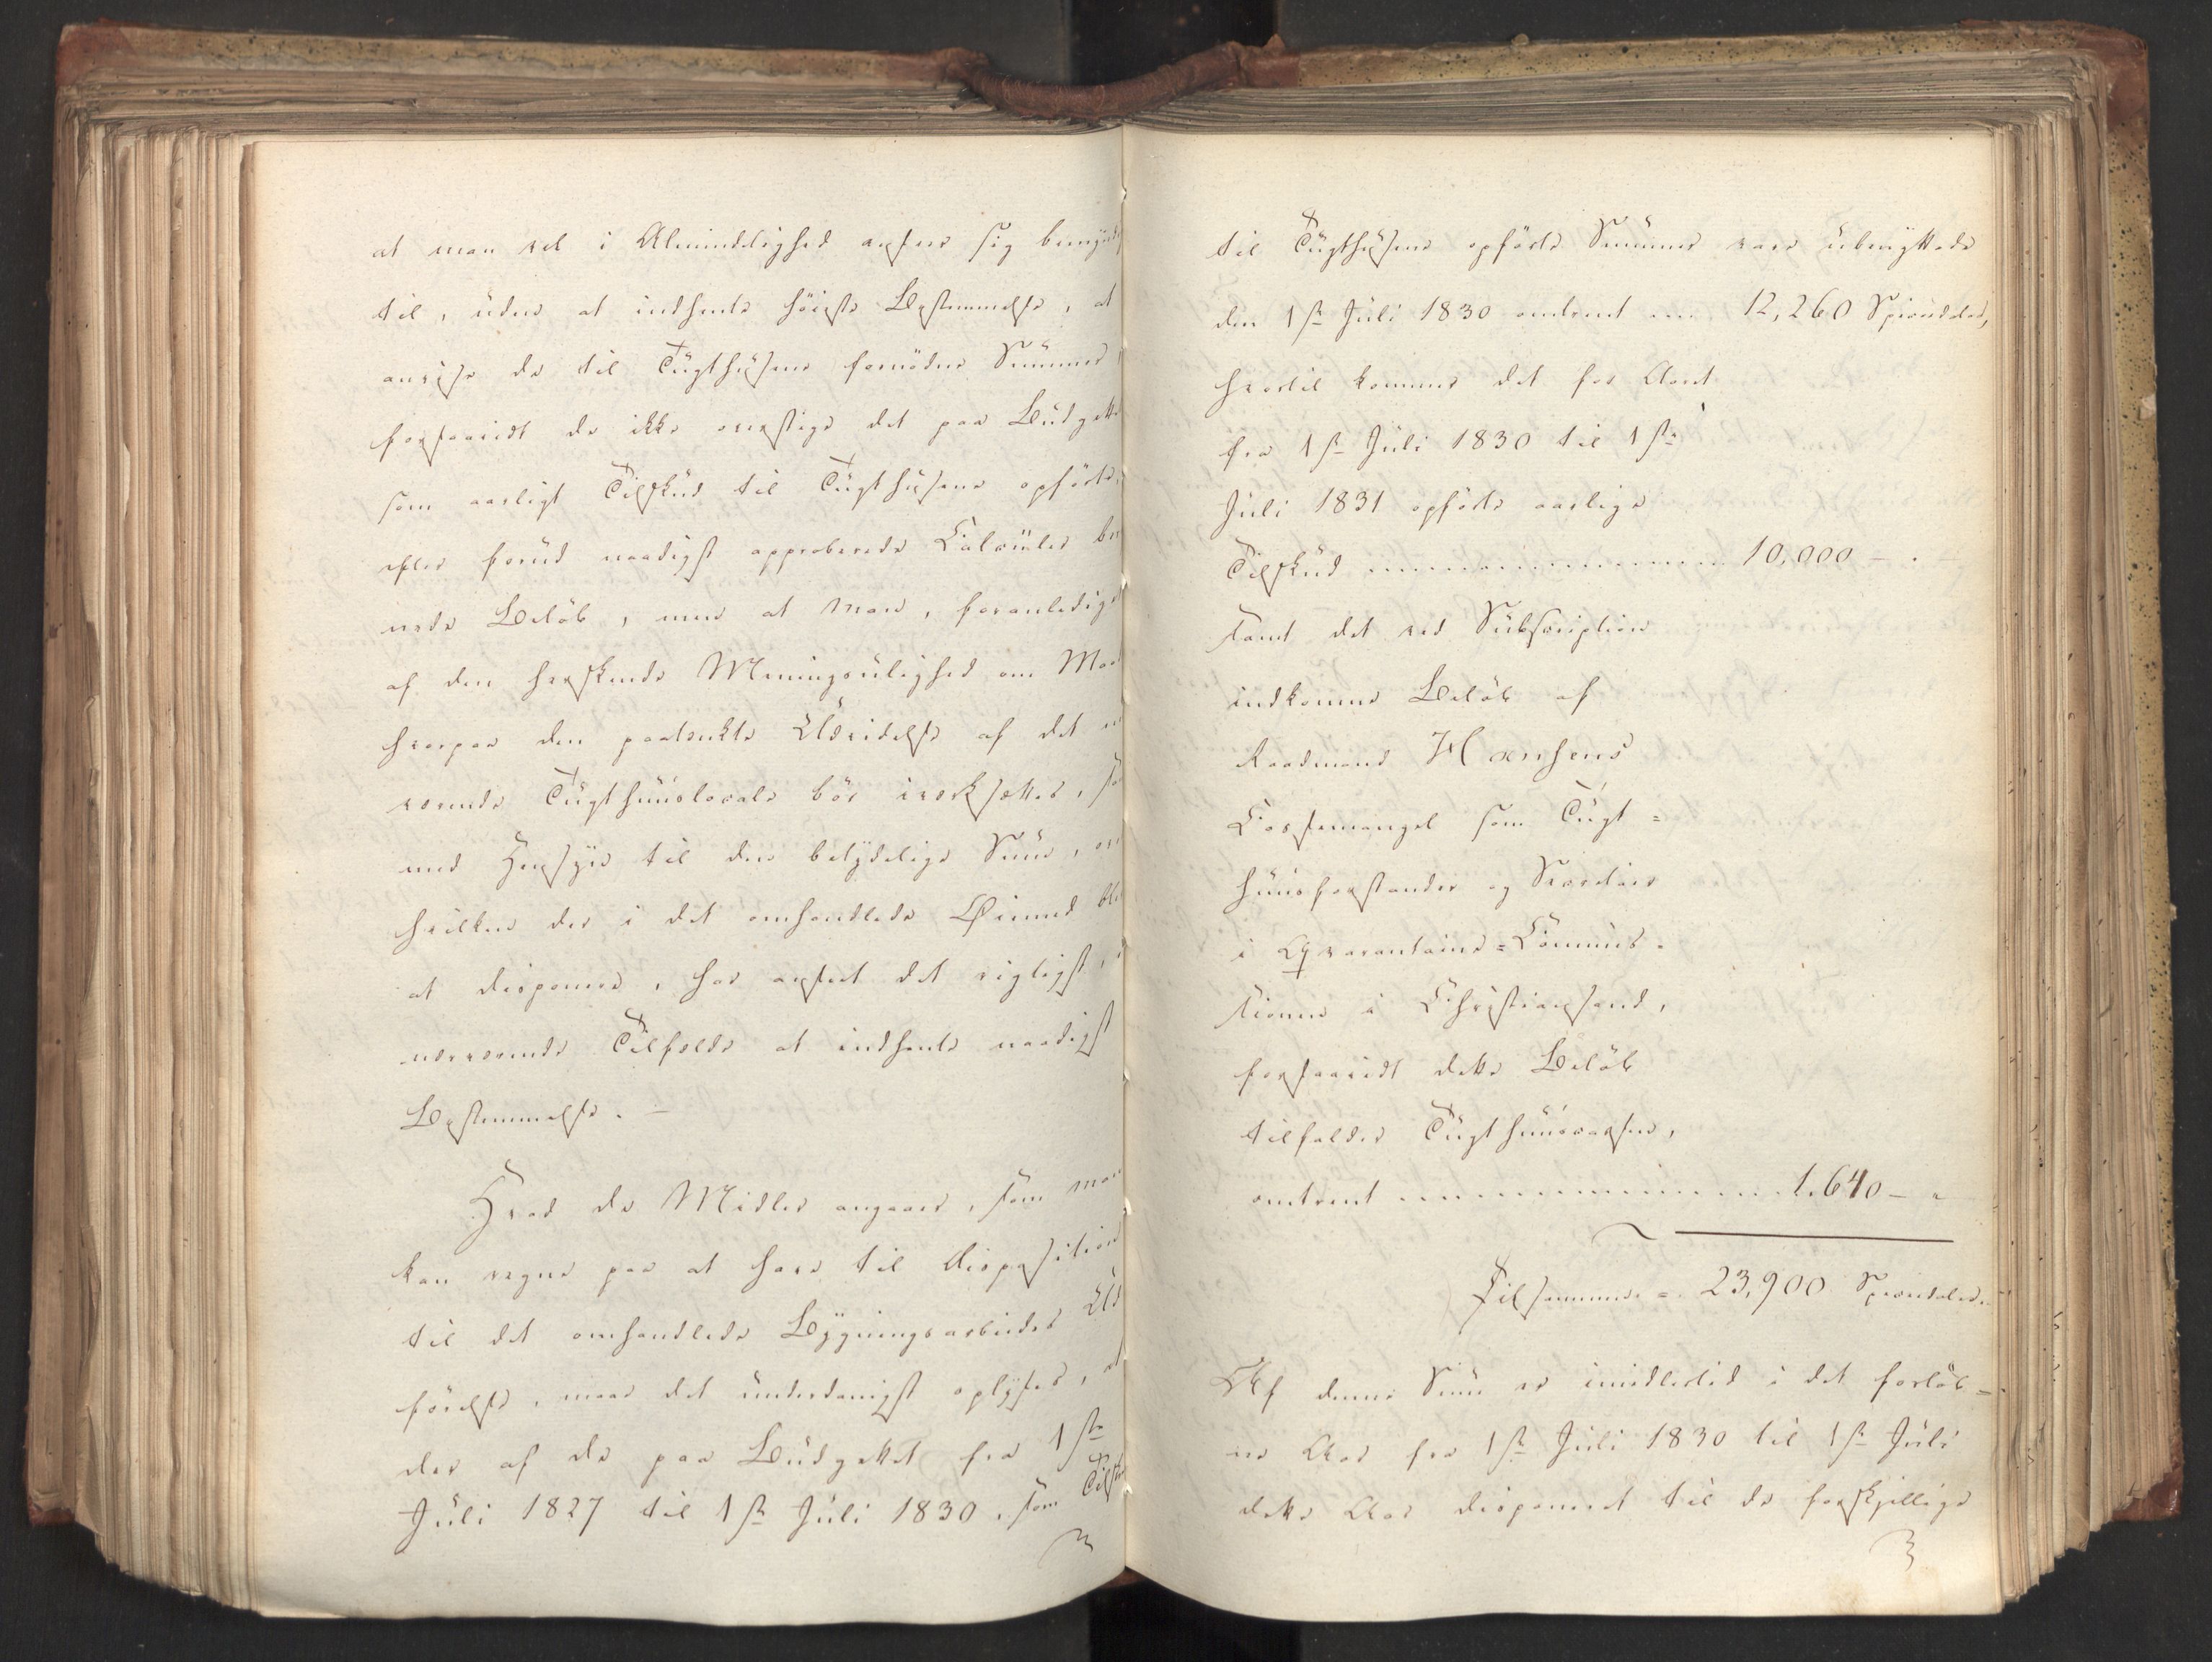 at man vel i Almindelighed anseer sig bemyndi
til, uden at indhente höieste Bestemmelse, at
anvise de til Tugthusene fornödne Summer
forsaavidt de ikke overstige det paa Budgettet
som aarligt Tilskud til Tugthusene opförte,
efter forud naadigst approberede Calculer be
nede Belöb, men at man, foranlediget
af den herskende Meningsulighed om Maad
hvorpaa den paatænkte Udvidelse af det nu
værende Tugthuuslocale bör iværksættes, sa
med Hensyn til den betydelige Sum, ove
hvilken der i det omhandlede Öiemed bli
at disponere, har anseet det rigtigst, i
nærværende Tilfælde at indhente naadigst
Bestemmelse. —
Hvad de Midler angaaer, som man
kan regne paa at have til Disposition
til det omhandlede Bygningsarbeides Ud
förelse, maae det underdanigst oplyses, at
der af de paa Budgettet fra 1ste
Juli 1827 til 1ste Juli 1830, som Tilsk
til Tugthusene opförte Summer vare ubenyttede
den 1ste Juli 1830 omtrent .... 12,260 Speciedaler,
hvortil kommer det for Aaret
fra 1ste Juli 1830 til 1ste
Juli 1831 opförte aarlige
Tilskud .................. 10,000 — .
samt det ved Subscription
indkomne Belöb af
Raadmand Hansens
Cassemangel som Tugt=
huusforstander og Secretair
i Qvarantaine=Commis=
sionen i Christiansand,
forsaavidt dette Belöb
tilfalder Tugthuuscassen,
omtrent .................. 1,640 — "
Tilsammen = 23,900 Speciedaler.
Af denne Sum er imidlertid i det forlöb=
ne Aar fra 1ste Juli 1830 til 1ste Juli
dette Aar disponeret til de forskjellige